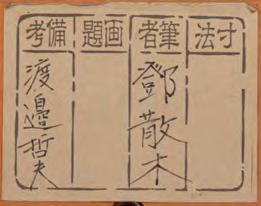 寸法
筆者
鄧散木
画題
備考
渡邉哲夫